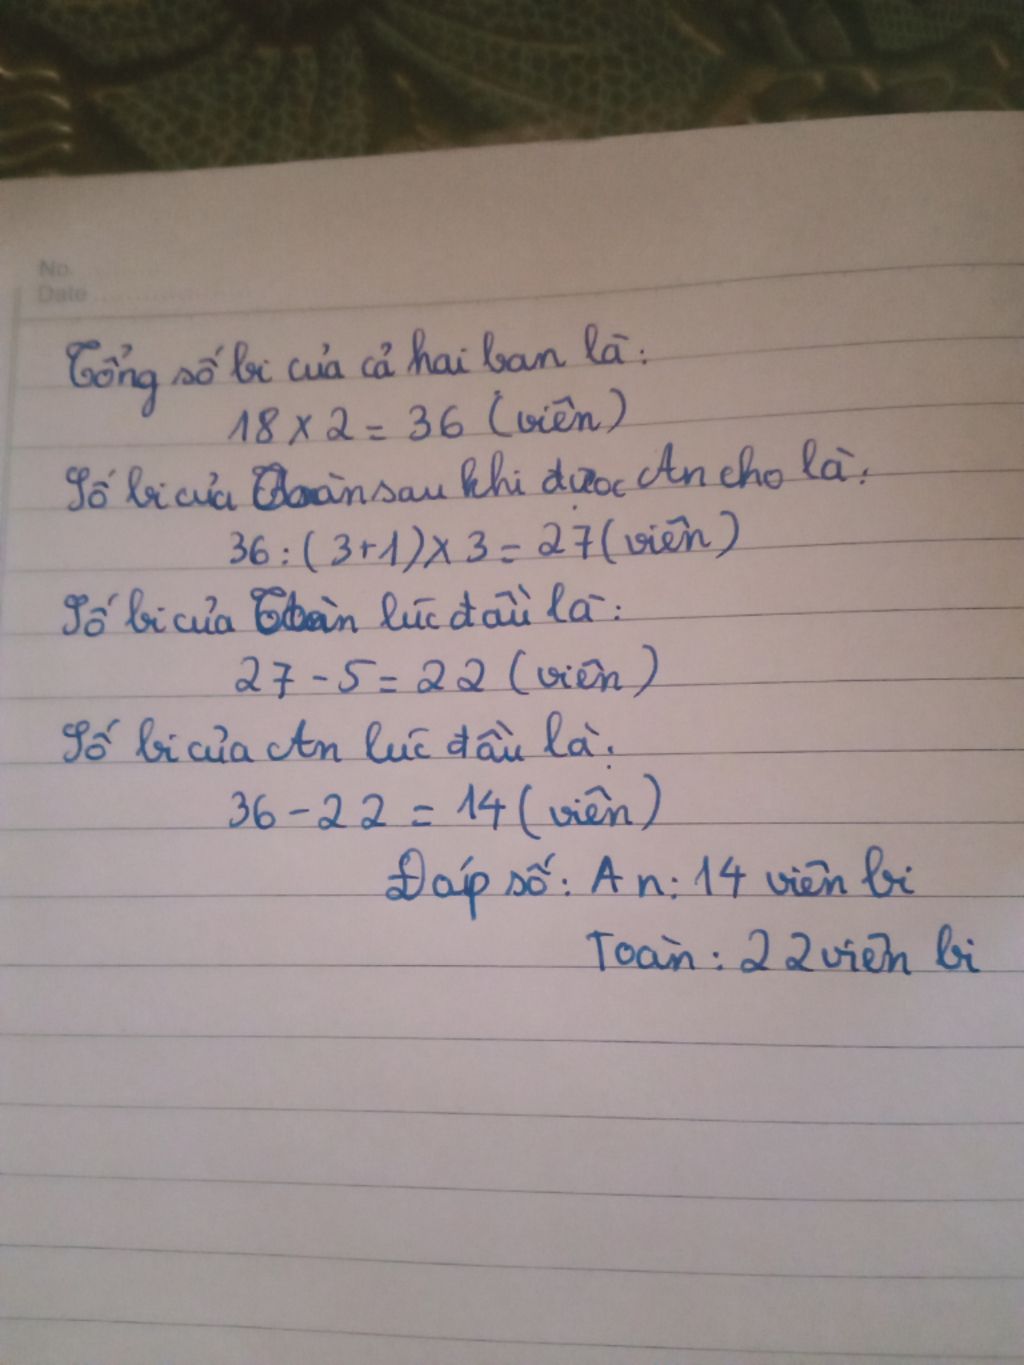 No.
Date
Tổng số bi của cả hai ban là:
18 x 2 = 36 (viên)
Số bi của Toàn sau khi được An cho là:
36 : (3+1) x 3 = 27 (viên)
Số bi của Toàn lúc đầu là:
27 - 5 = 22 (viên)
Số bi của An lúc đầu là:
36 - 22 = 14 (viên)
Đáp số: An: 14 viên bi
Toàn: 22 viên bi